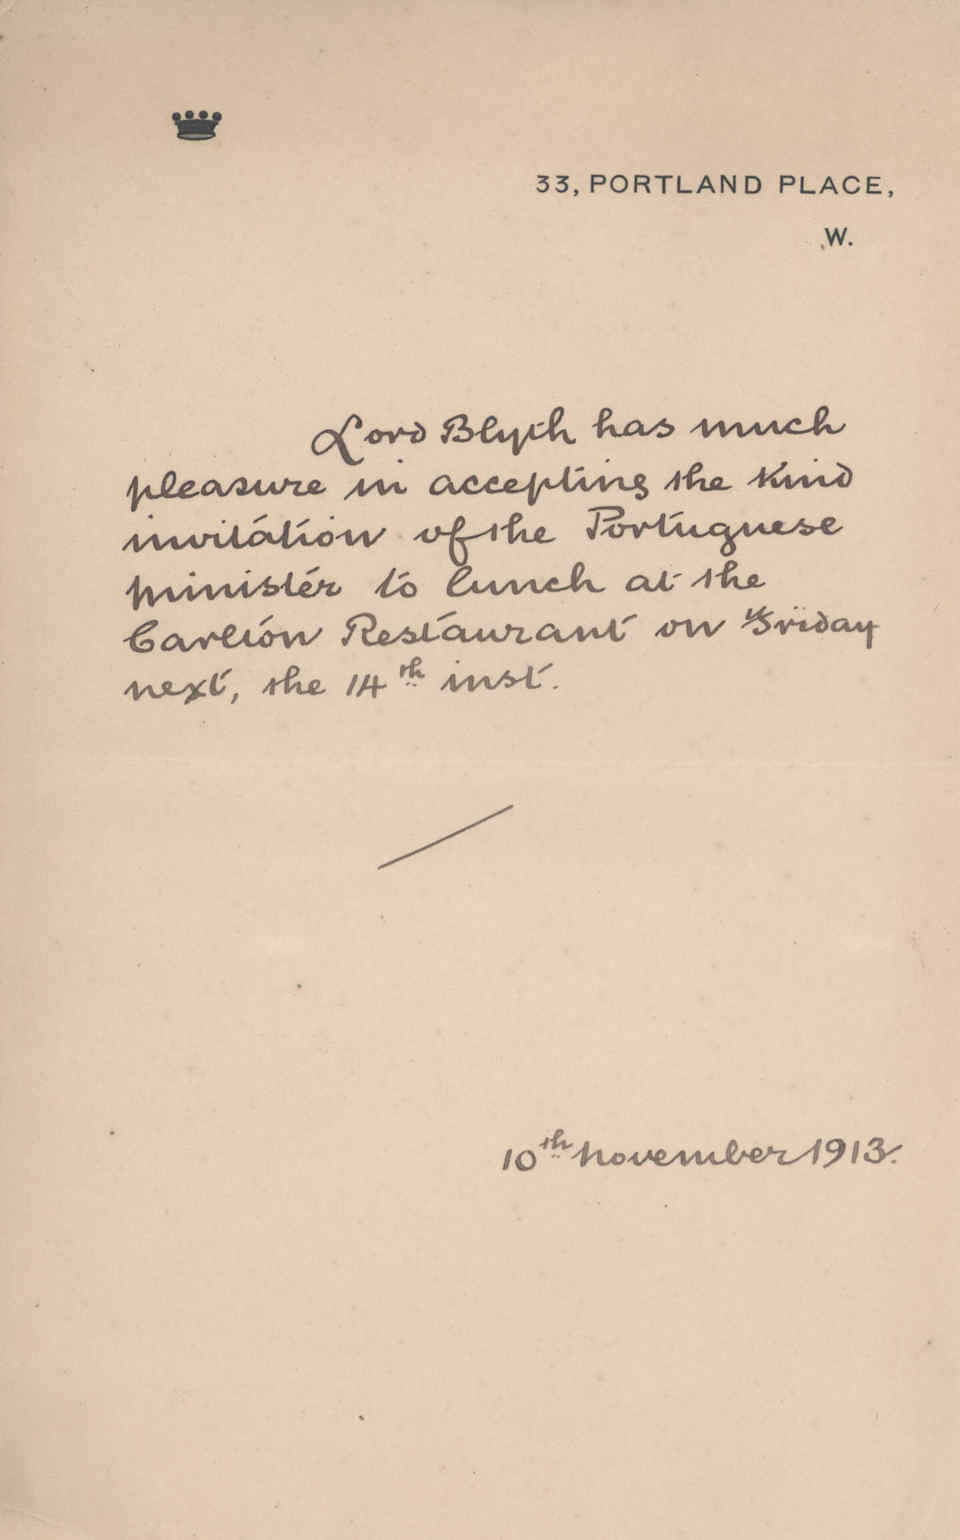 33, PORTLAND PLACE,
W.
Lord Blyth has much
pleasure in accepting the kind
invitation of the Portuguese
Minister to lunch at the
Carlton Restaurant on Friday
next, the 14th inst.
10th November 1913.